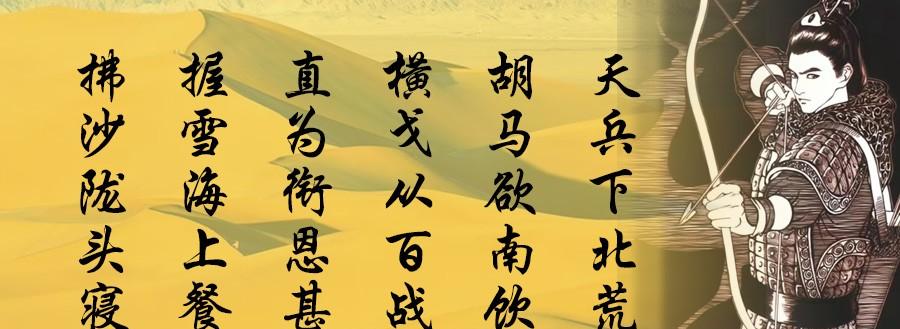 天兵下北荒
胡马欲南饮
横戈从百战
直为衔恩甚
握雪海上餐
拂沙陇头寝